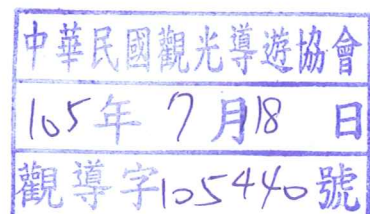 中華民國觀光導遊協會
105年7月18日
觀導字105440號